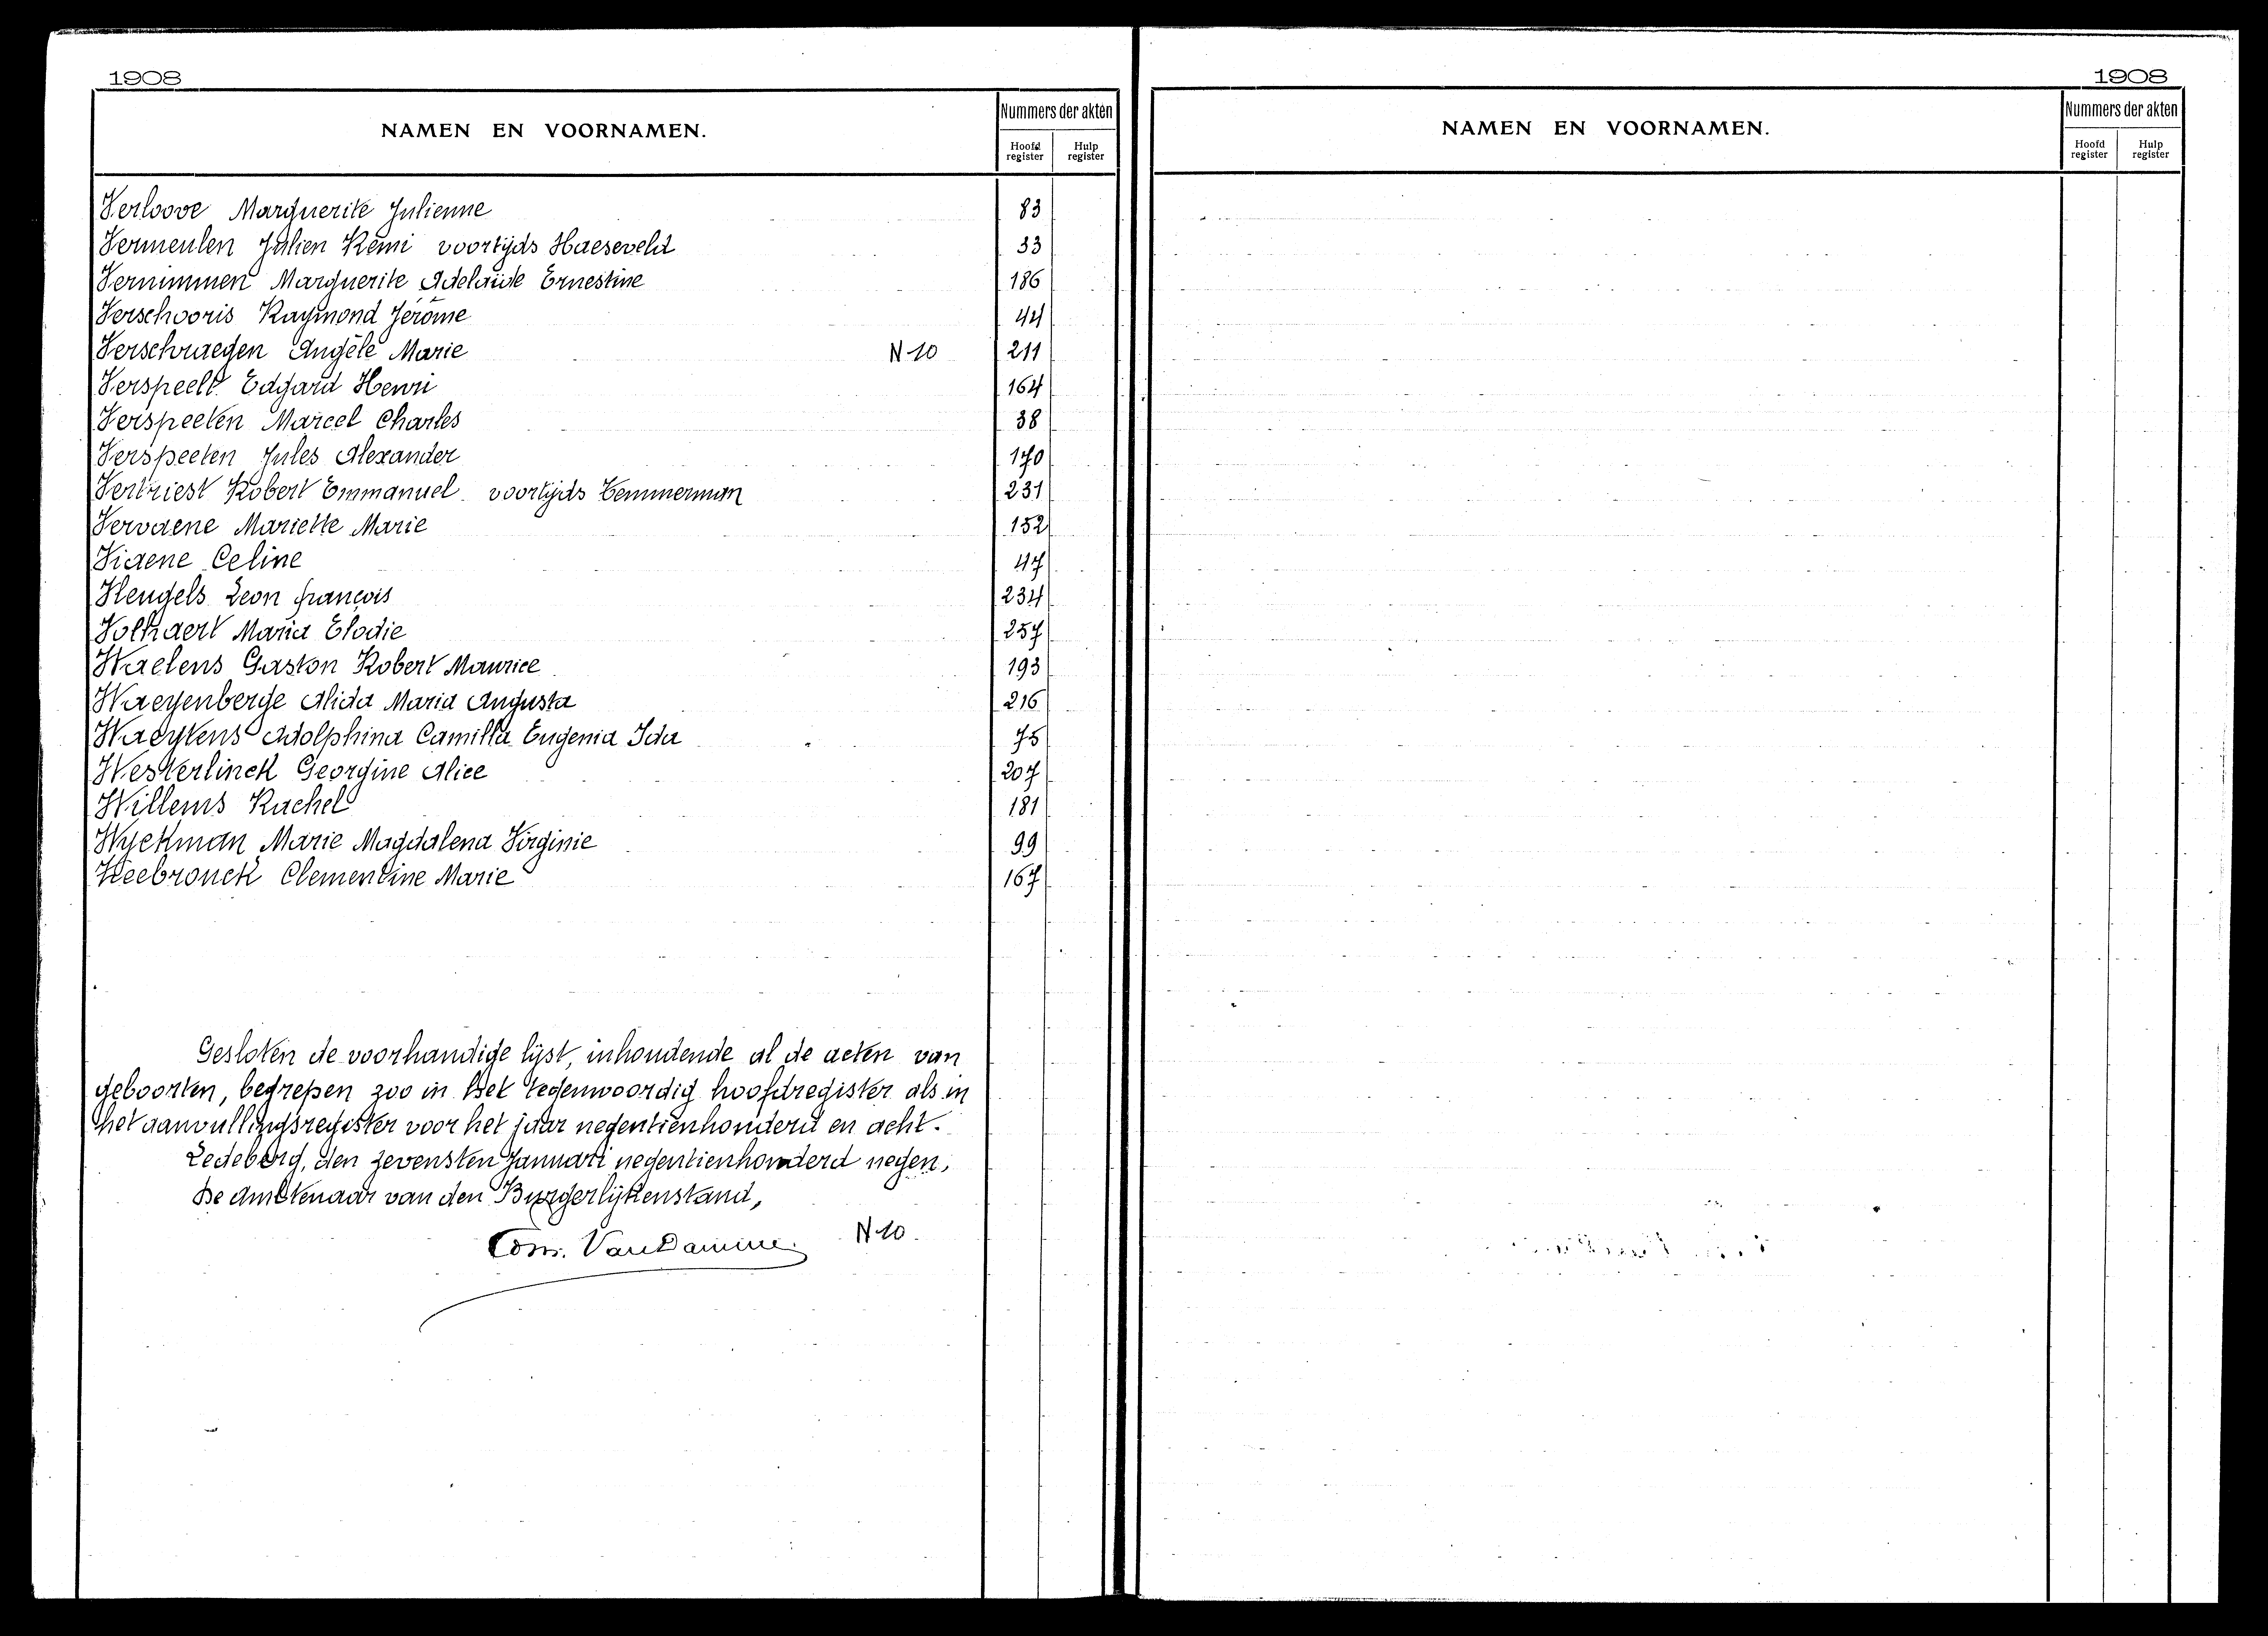 1908
NAMEN EN VOORNAMEN.
Nummers der akten
Hoofd register
Hulp register
Verloove Marguerite Julienne 83
Vermeulen Julien Remi voortijds Haeseveld 33
Vernimmen Marguerite Adelaïde Ernestine 186
Verschooris Raymond Jérôme 44
Verschraegen Angèle Marie N 10 211
Verspeelt Edgard Henri 164
Verspeeten Marcel Charles 38
Verspeeten Jules Alexander 170
Vertriest Robert Emmanuel voortijds Temmerman 231
Vervaene Mariette Marie 152
Viaene Celine 47
Vleugels Leon françois 234
Volkaert Maria Elodie 257
Waelens Gaston Robert Maurice 193
Waeyenberge Alida Maria Augusta 216
Waeytens Adolphina Camilla Eugenia Ida 75
Westerlinck Georgine Alice 207
Willems Rachel 181
Wyckman Marie Magdalena Virginie 99
Zeebrouck Clementine Marie 167
Gesloten de voorhandige lijst, inhoudende al de acten van
geboorten, begrepen zoo in het tegenwoordig hoofdregister als in
het aanvullingsregister voor het jaar negentienhonderd en acht.
Ledeberg, den zevensten Januari negentienhonderd negen,
De Ambtenaar van den Burgerlijkenstand,
VanDamme N 10
1908
NAMEN EN VOORNAMEN.
Nummers der akten
Hoofd register
Hulp register